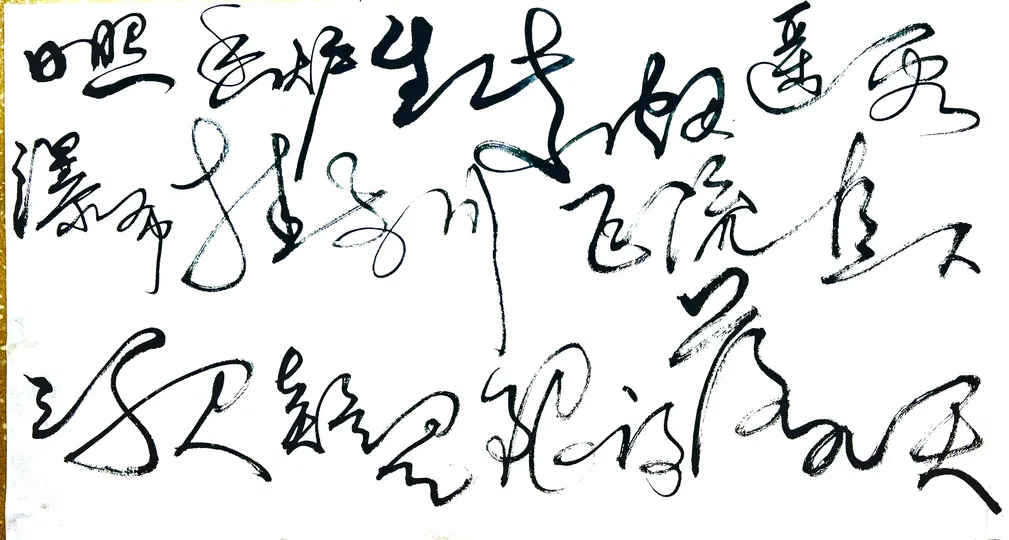 日照香炉生紫烟遥看
瀑布挂前川飞流直下
三千尺疑是银河落九天